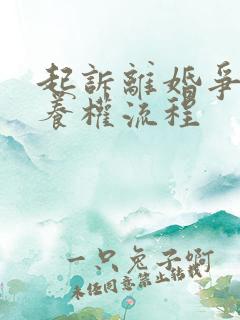 起訴離婚爭
養權流程
一只兔子啊
未經同意禁止轉載